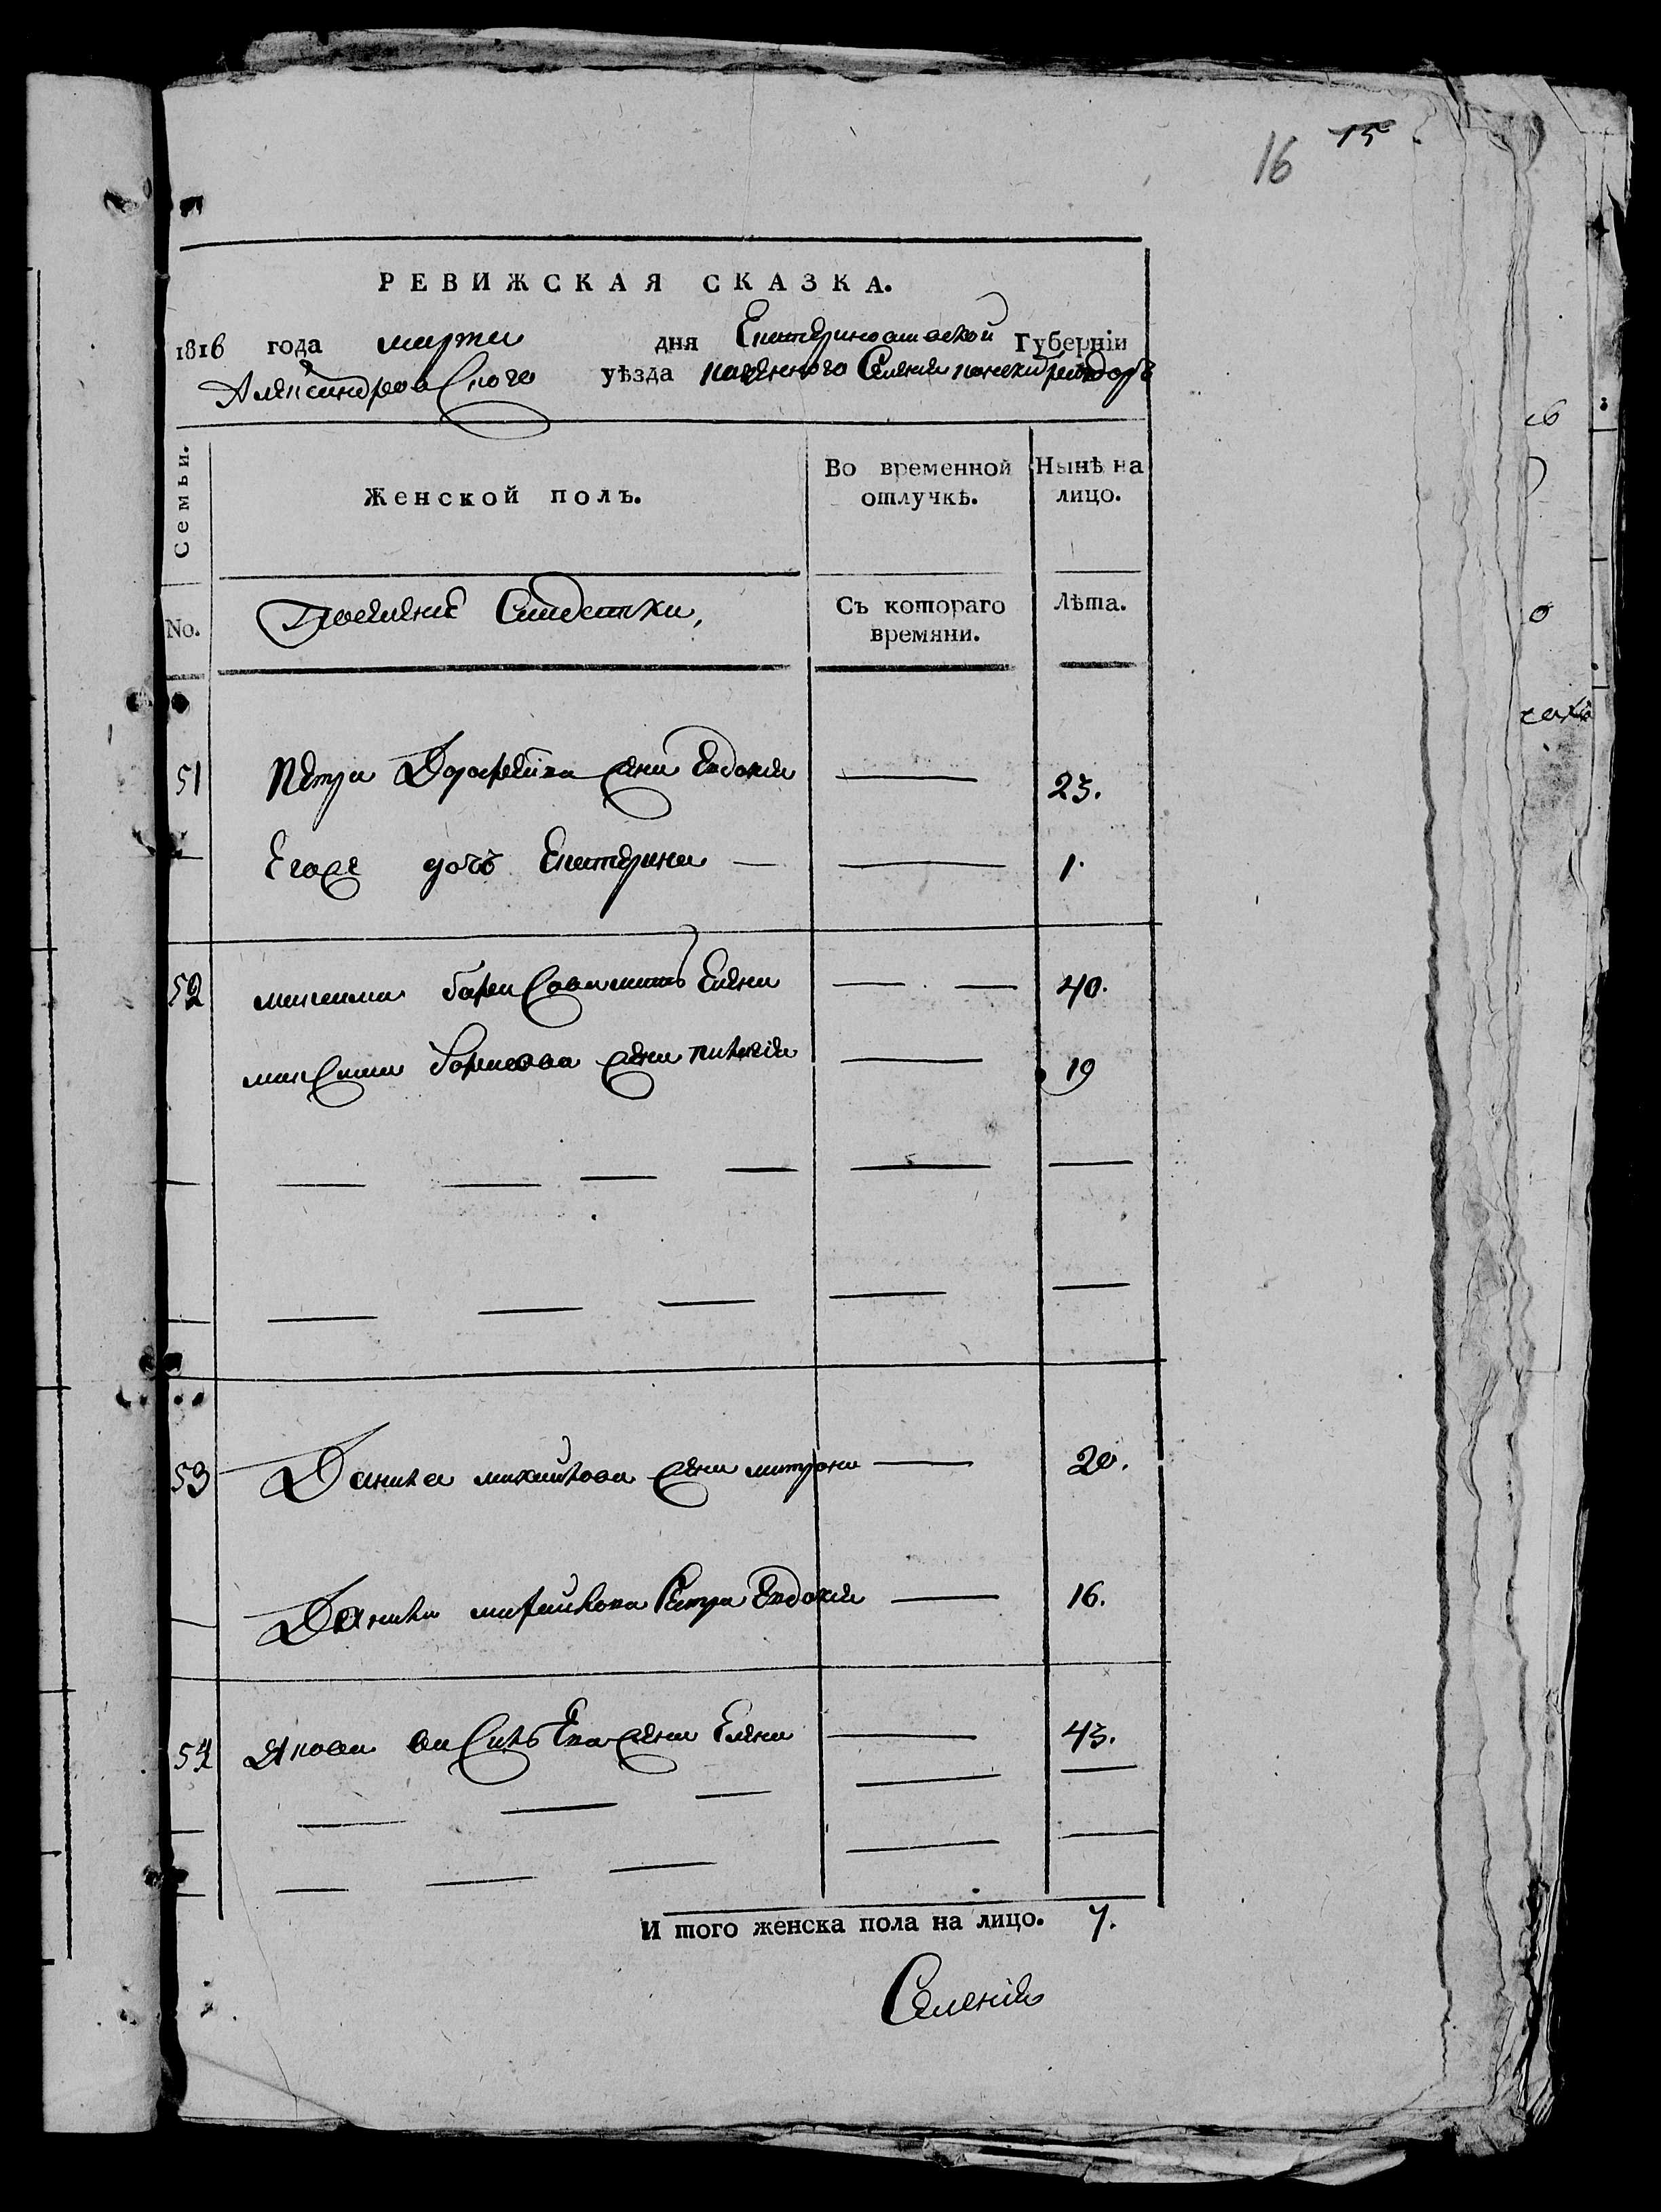 16 15
РЕВИЖСКАЯ СКАЗКА.
1816 года марта дня Екатеринославской Губерніи
Александровского уѣзда казенного Селения
Семьи. Женской полъ. Во временной отлучкѣ. Нынѣ на лицо.
No. Съ котораго времяни. Лѣта.
51 Петра Дорофеива жена Евдокия — 23.
Его дочь Екатерина — — 1.
52 максима борисова мать Елена — — 40.
максима борисова жена 19
53 Данила михайлова жена матрона — 20.
Данила михайлова сестра Евдокия — 16.
54 Якова жена Елена — 43.
И того женска пола на лицо. 7.
Селения